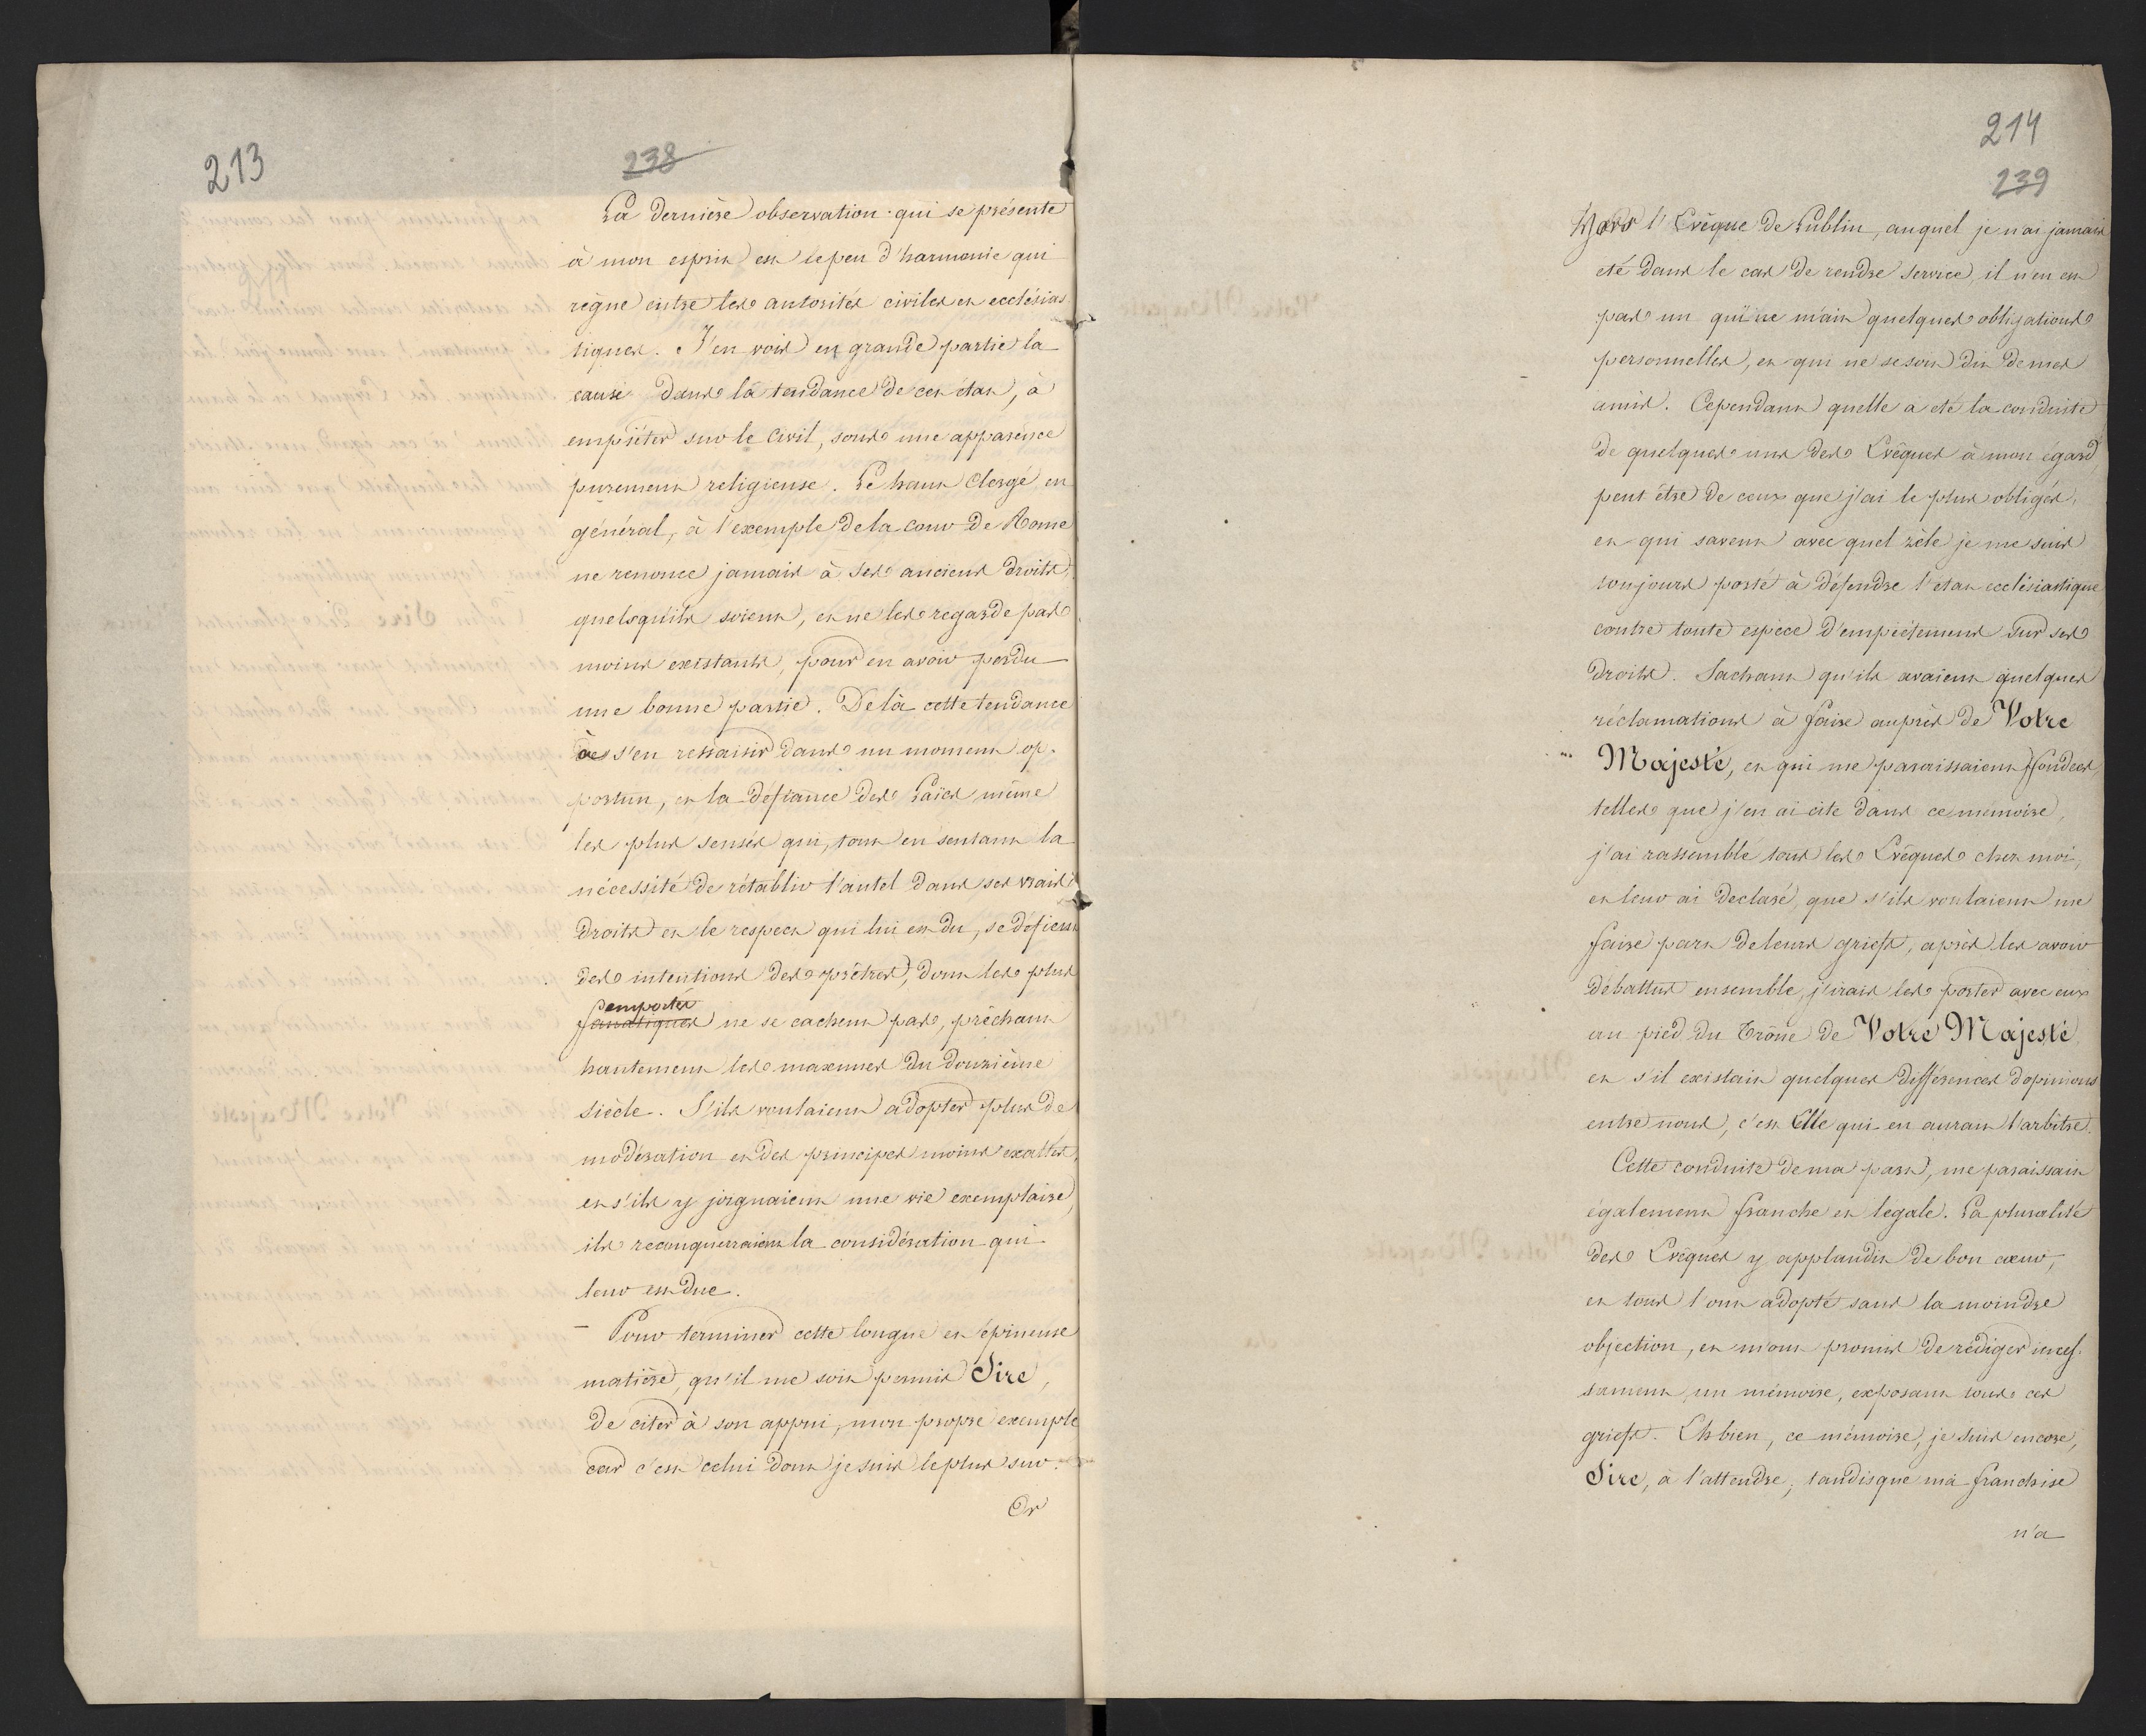 213
238
La dernière observation qui se présente
à mon esprit est le peu d'harmonie qui
règne entre les autorités civiles et ecclésias
tiques. J'en vois en grande partie la
cause dans la tendance de cet état, à
empiéter sur le Civil, sous une apparence
purement religieuse. Le haut Clergé en
général, à l'exemple de la cour de Rome
ne renonce jamais à ses anciens droits,
quels qu'ils soient, et ne les regarde pas
moins existants, pour en avoir perdu
une bonne partie. De là cette tendance
à s'en ressaisir dans un moment op-
portun, et la défiance des Laïcs même
les plus sensés qui, tout en sentant la
nécessité de rétablir l'autel dans ses vrais
droits et le respect qui lui est du, se défient
des intentions des prêtres, dont les plus
emportés
fanatiques ne se cachent pas, prêchant
hautement les maximes du douzième
siècle. S'ils voulaient adopter plus de
modération et des principes moins exaltés,
et s'ils y joignaient une vie exemplaire,
ils reconquerraient la considération qui
leur est due.
Pour terminer cette longue et épineuse
matière, qu'il me soit permis Sire,
de citer à son appui, mon propre exemple
car c'est celui dont je suis le plus sur.
Or
214
239
Hors l'Evêque de Lublin, auquel je n'ai jamais
eté dans le cas de rendre service, il n'en est
pas un qui ne m'ait quelques obligations
personnelles, et qui ne se soit dit de mes
amis. Cependant quelle a eté la conduite
de quelques uns des Evêques à mon égard,
peut être de ceux que j'ai le plus obligés,
et qui savent avec quel zèle je me suis
toujours porté à défendre l'état ecclésiastique
contre toute espèce d'empiètement sur ses
droits. Sachant qu'ils avaient quelques
réclamations à faire auprès de Votre
Majesté, et qui me paraissaient fondées,
telles que j'en ai cité dans ce mémoire,
j'ai rassemblé tous les Evêques chez moi,
et leur ai declaré, que s'ils voulaient me
faire part de leurs griefs, après les avoir
débattus ensemble, j'irais les porter avec eux
au pied du Trône de Votre Majesté
et s'il existait quelques différences d'opinions
entre nous, c'est Elle qui en aurait l'arbitre.
Cette conduite de ma part, me paraissait
également franche et légale. La pluralité
des Evêques y applaudit de bon cœur,
et tous l'ont adopté sans la moindre
objection, et m'ont promis de rédiger inces-
sament un mémoire, exposant tous ces
griefs. Eh bien, ce mémoire, je suis encore,
Sire, à l'attendre, tandis que ma franchise
n'a